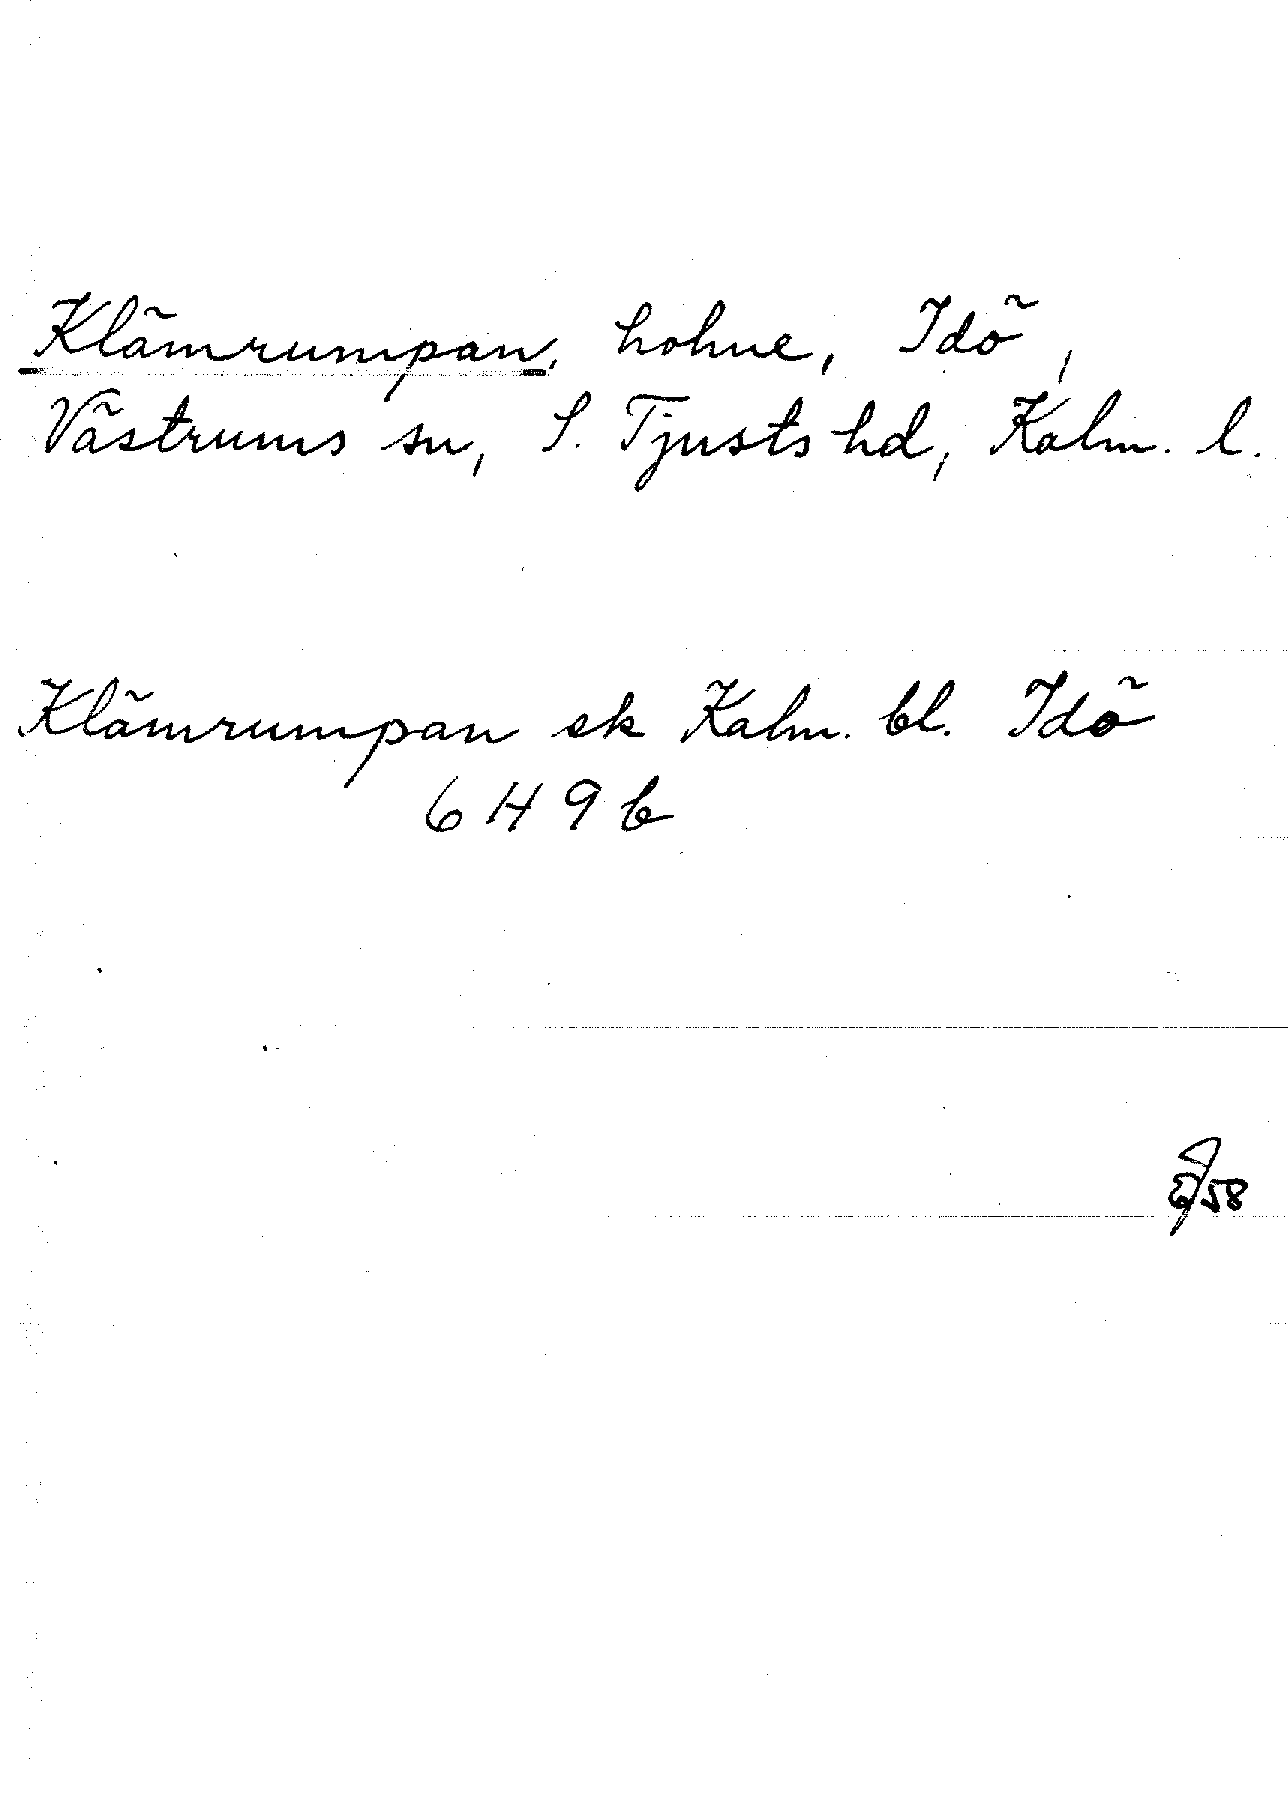 Klämrumpan, holme, Idö,
Västrums sn, S. Tjusts hd, Kalm. l.
Klämrumpan ek Kalm. bl. Idö
6 H 9 b
58